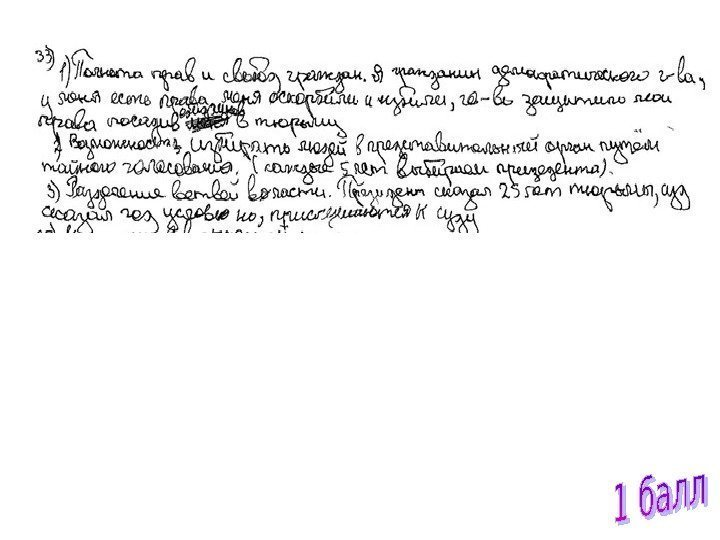 33)
1) Полнота прав и свобод граждан. Я гражданин демократического г-ва,
у меня есть права меня оскорбили и избили, го-во защитило мои
права посадив обидчиков в тюрьму
2) Возможность избирать людей в представительный орган путём
тайного голосования. (каждые 5 лет выбираем президента).
3) Разделение ветвей власти. Президент сказал 25 лет тюрьмы, суд
сказал год условно, прислушиваются к суду
1 балл